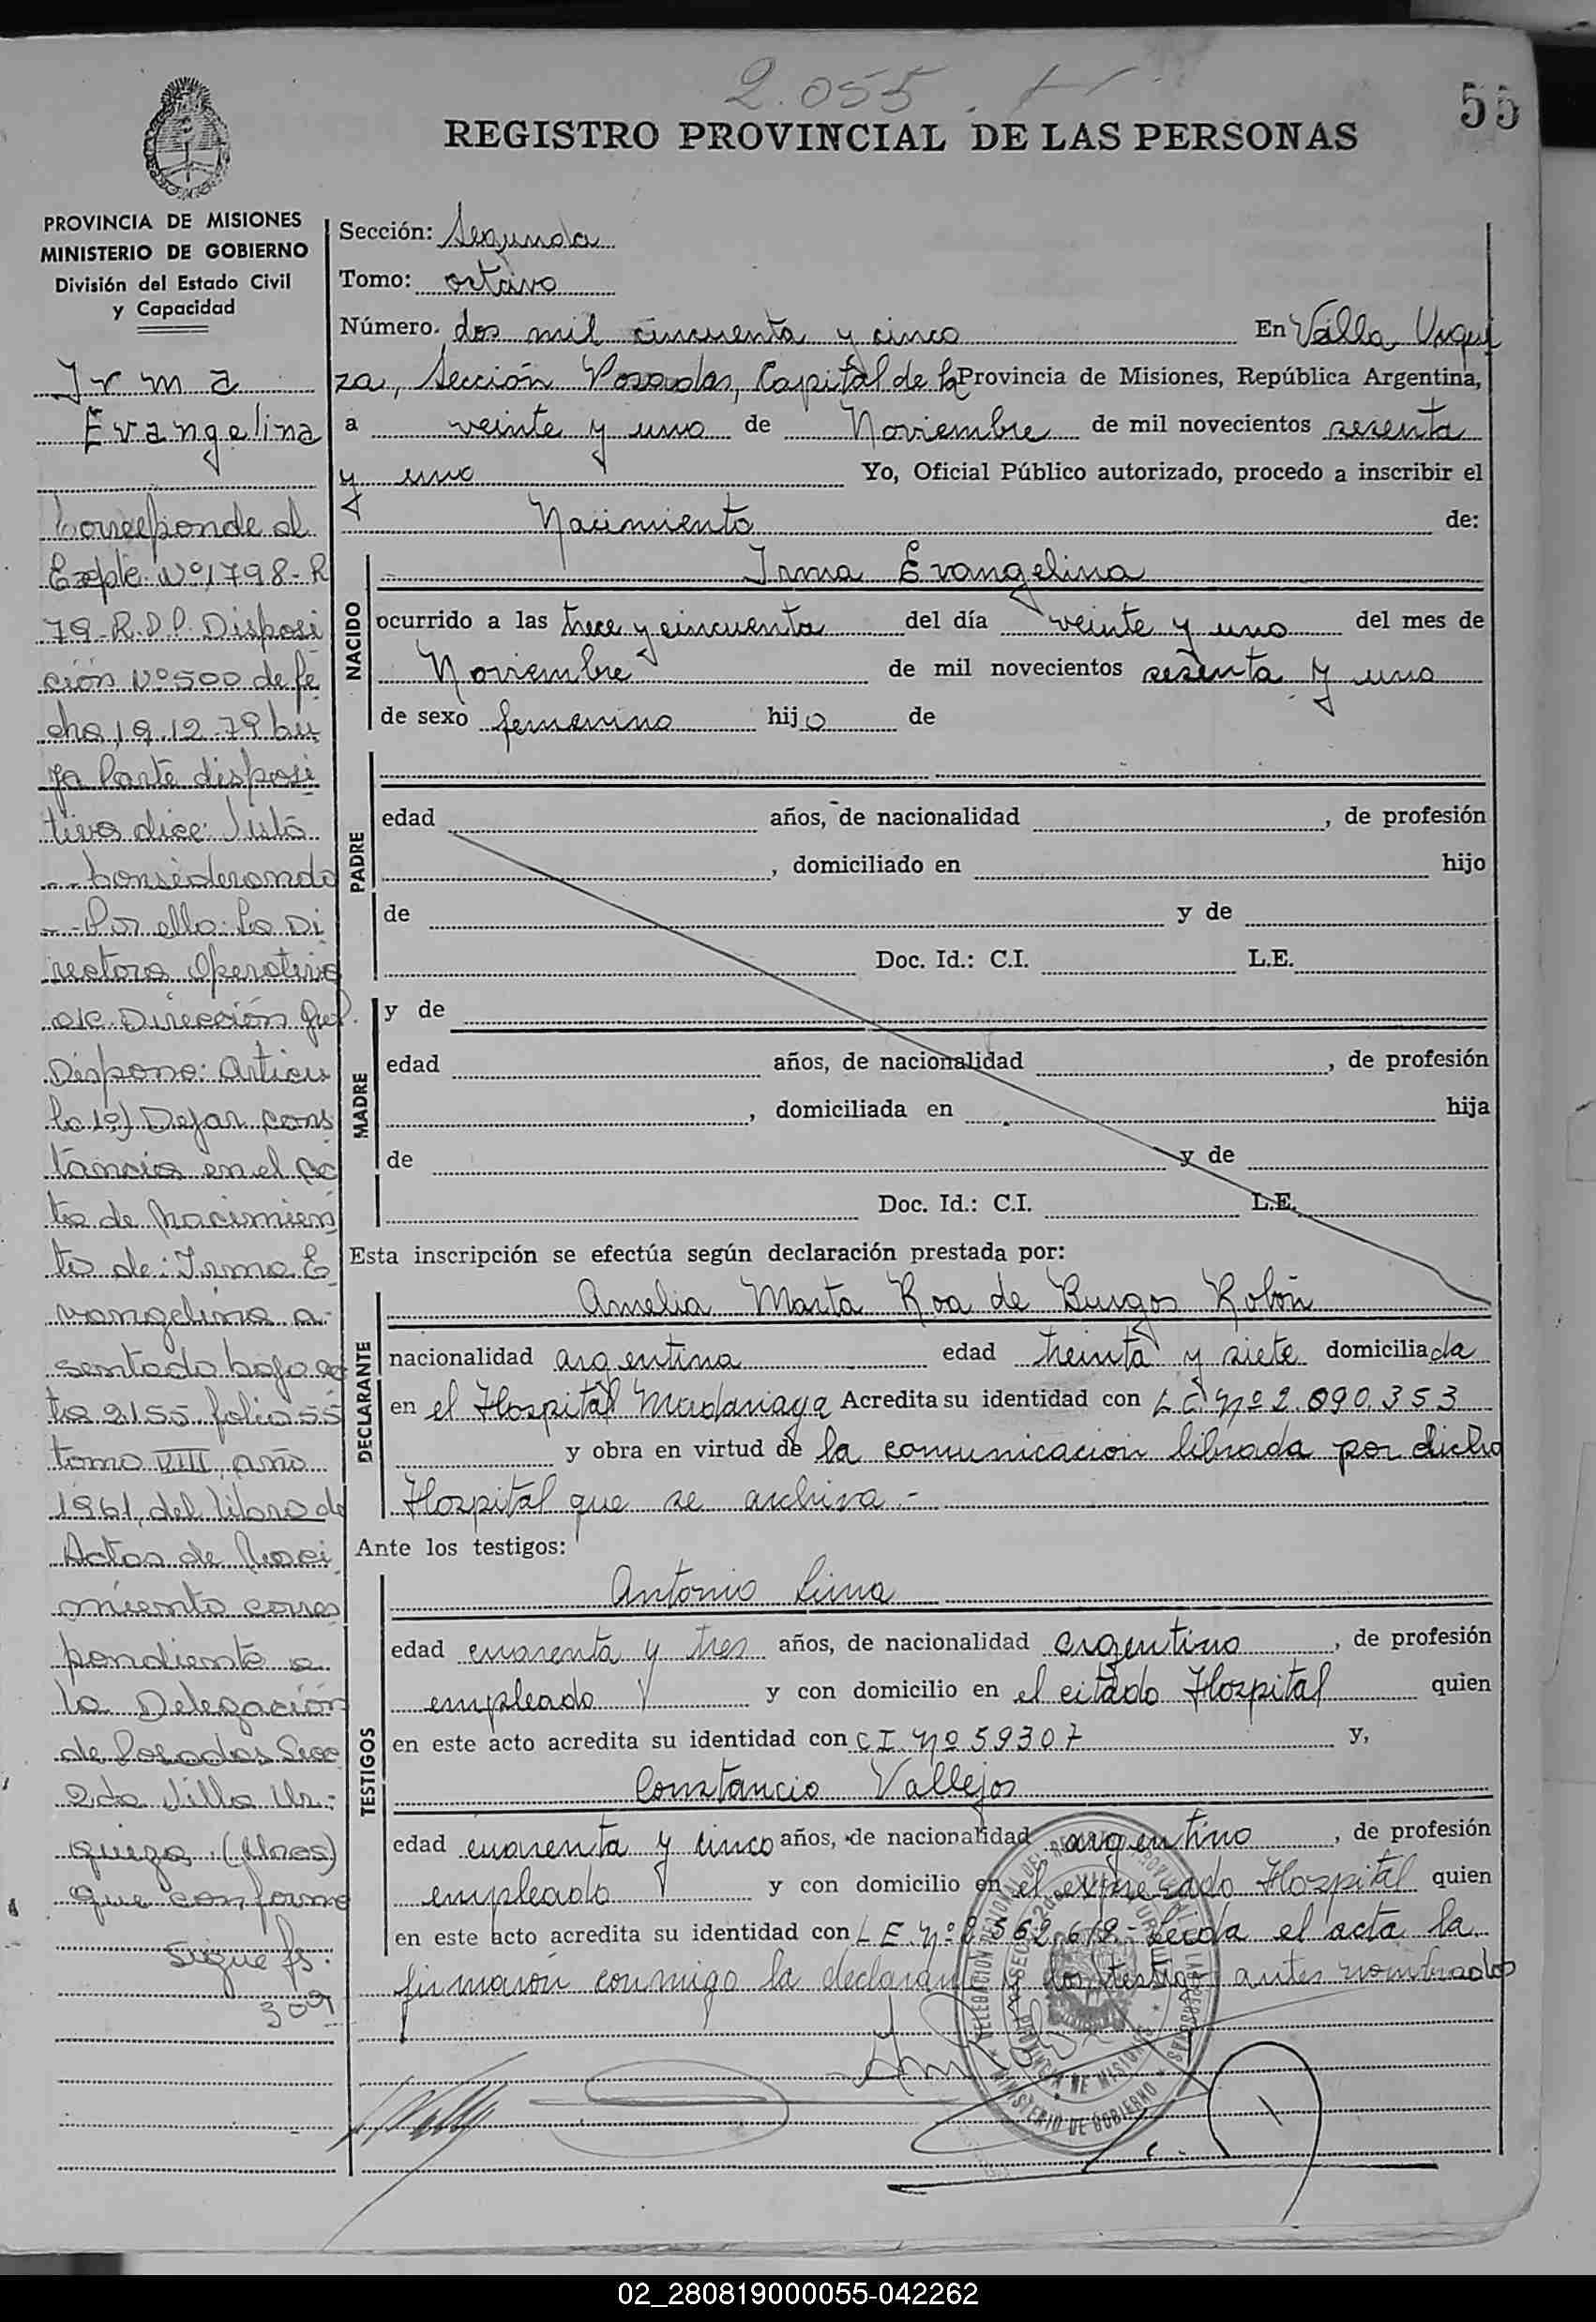 2.055
55
REGISTRO PROVINCIAL DE LAS PERSONAS
PROVINCIA DE MISIONES
MINISTERIO DE GOBIERNO
División del Estado Civil
y Capacidad
Irma
Evangelina
Corresponde al
Expte. Nº 1798-R
79-R.D.P. Disposi
ción Nº 500 de fe
cha 19.12.79 cu
ya Parte disposi
tiva dice: Visto
-- Considerando
-- Por ello: La Di
rectora Operativa
a/c. Dirección Gral.
Dispone: Artícu
lo 1º) Dejar cons
tancia en el ac
ta de Nacimien
to de: Irma E
vangelina a-
sentado bajo ac
ta 2155 folio 55
tomo VIII, año
1961, del libro de
Actas de Naci
miento corres
pondiente a
la Delegación
de Posadas Secc
2da Villa Ur-
quiza (Mnes)
que conforme
Sigue fs.
309
Sección: Segunda
Tomo: octavo
Número. dos mil cincuenta y cinco En Villa Urqui
za, Sección Posadas, Capital de la Provincia de Misiones, República Argentina,
a veinte y uno de Noviembre de mil novecientos sesenta
y uno Yo, Oficial Público autorizado, procedo a inscribir el
Nacimiento de:
NACIDO
Irma Evangelina
ocurrido a las trece y cincuenta del día veinte y uno del mes de
Noviembre de mil novecientos sesenta y uno
de sexo femenino hijo de
PADRE
edad años, de nacionalidad , de profesión
, domiciliado en hijo
de y de
Doc. Id.: C.I. L.E.
MADRE
y de
edad años, de nacionalidad , de profesión
, domiciliada en hija
de y de
Doc. Id.: C.I. L.E.
Esta inscripción se efectúa según declaración prestada por:
DECLARANTE
Amelia Marta Roa de Burgos Robón
nacionalidad argentina edad treinta y siete domiciliada
en el Hospital Madariaga Acredita su identidad con L.C. Nº 2.090.353
y obra en virtud de la comunicacion librada por dicho
Hospital que se archiva.-
Ante los testigos:
TESTIGOS
Antonio Lima
edad cuarenta y tres años, de nacionalidad argentino , de profesión
empleado y con domicilio en el citado Hospital quien
en este acto acredita su identidad con C.I. Nº 59307 y,
Constancio Vallejos
edad cuarenta y cinco años, de nacionalidad argentino , de profesión
empleado y con domicilio en el expresado Hospital quien
en este acto acredita su identidad con L.E. Nº 2.562.618.- Leida el acta la
firmaron conmigo la declarante y los testigos antes nombrados
MINISTERIO DE GOBIERNO
PROVINCIA DE MISIONES
02_280819000055-042262